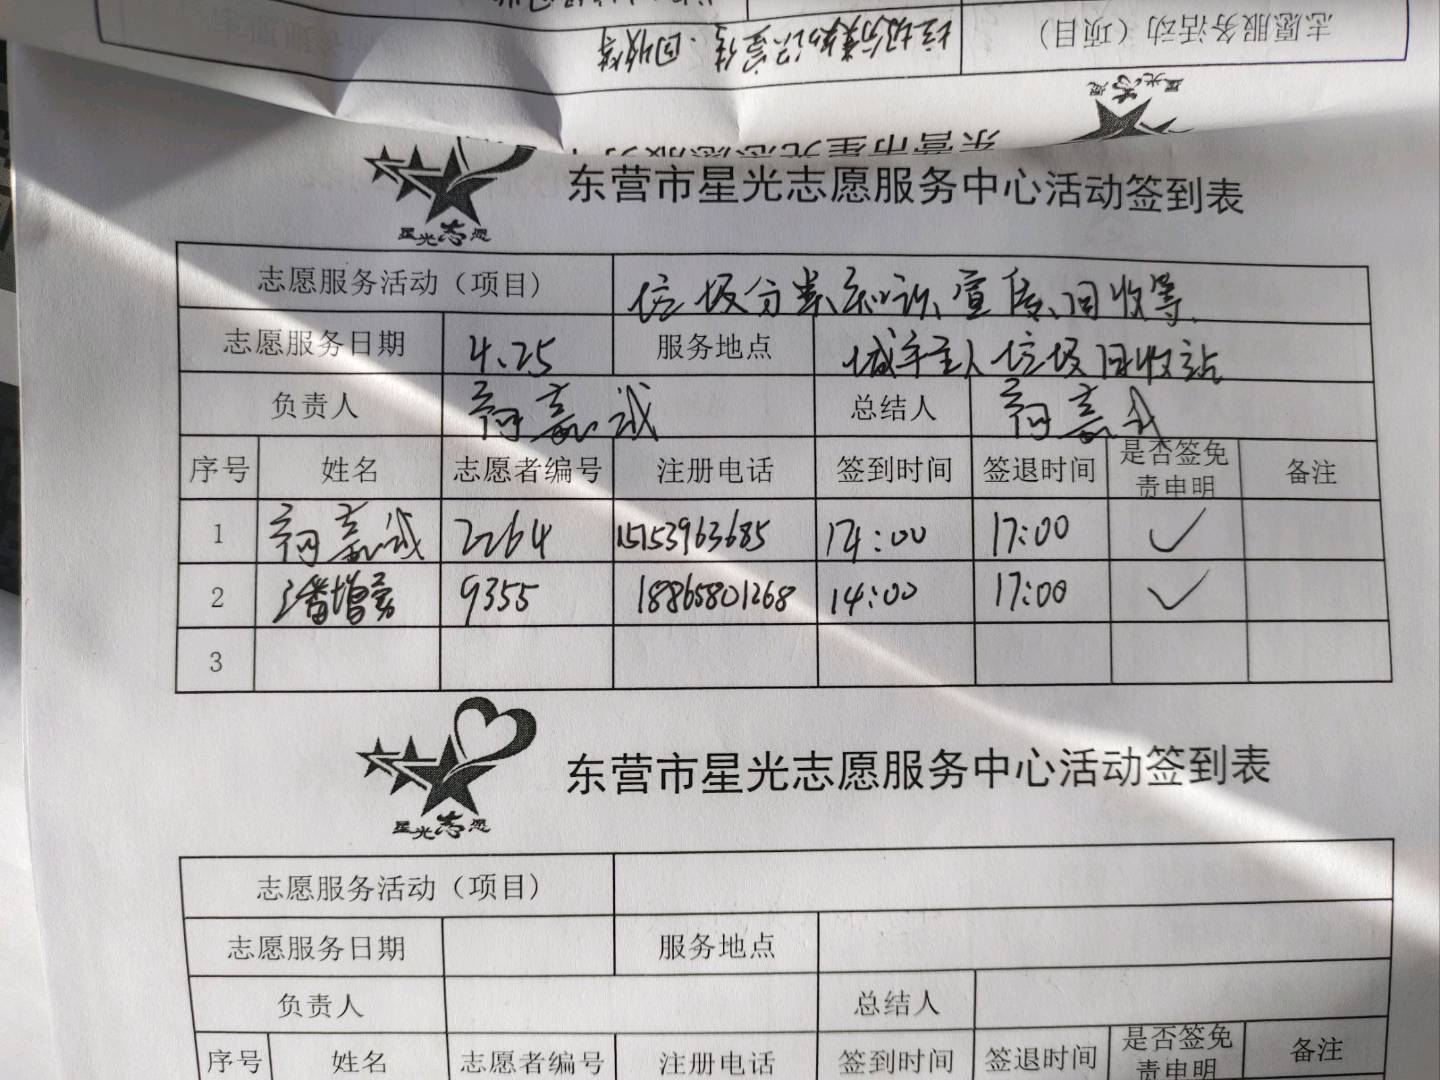 志愿服务活动（项目） 垃圾分类知识宣传、回收等
东营市星光志愿服务中
星光志愿
东营市星光志愿服务中心活动签到表
星光志愿
志愿服务活动（项目） 垃圾分类知识宣传、回收等
志愿服务日期 4.25 服务地点 城市主人垃圾回收站
负责人 嘉诚 总结人 嘉诚
序号 姓名 志愿者编号 注册电话 签到时间 签退时间 是否签免责申明 备注
1 嘉诚 2264 15153963685 14:00 17:00 ✓
2 潘增 9355 18865801268 14:00 17:00 ✓
3
东营市星光志愿服务中心活动签到表
星光志愿
志愿服务活动（项目）
志愿服务日期 服务地点
负责人 总结人
序号 姓名 志愿者编号 注册电话 签到时间 签退时间 是否签免责申明 备注